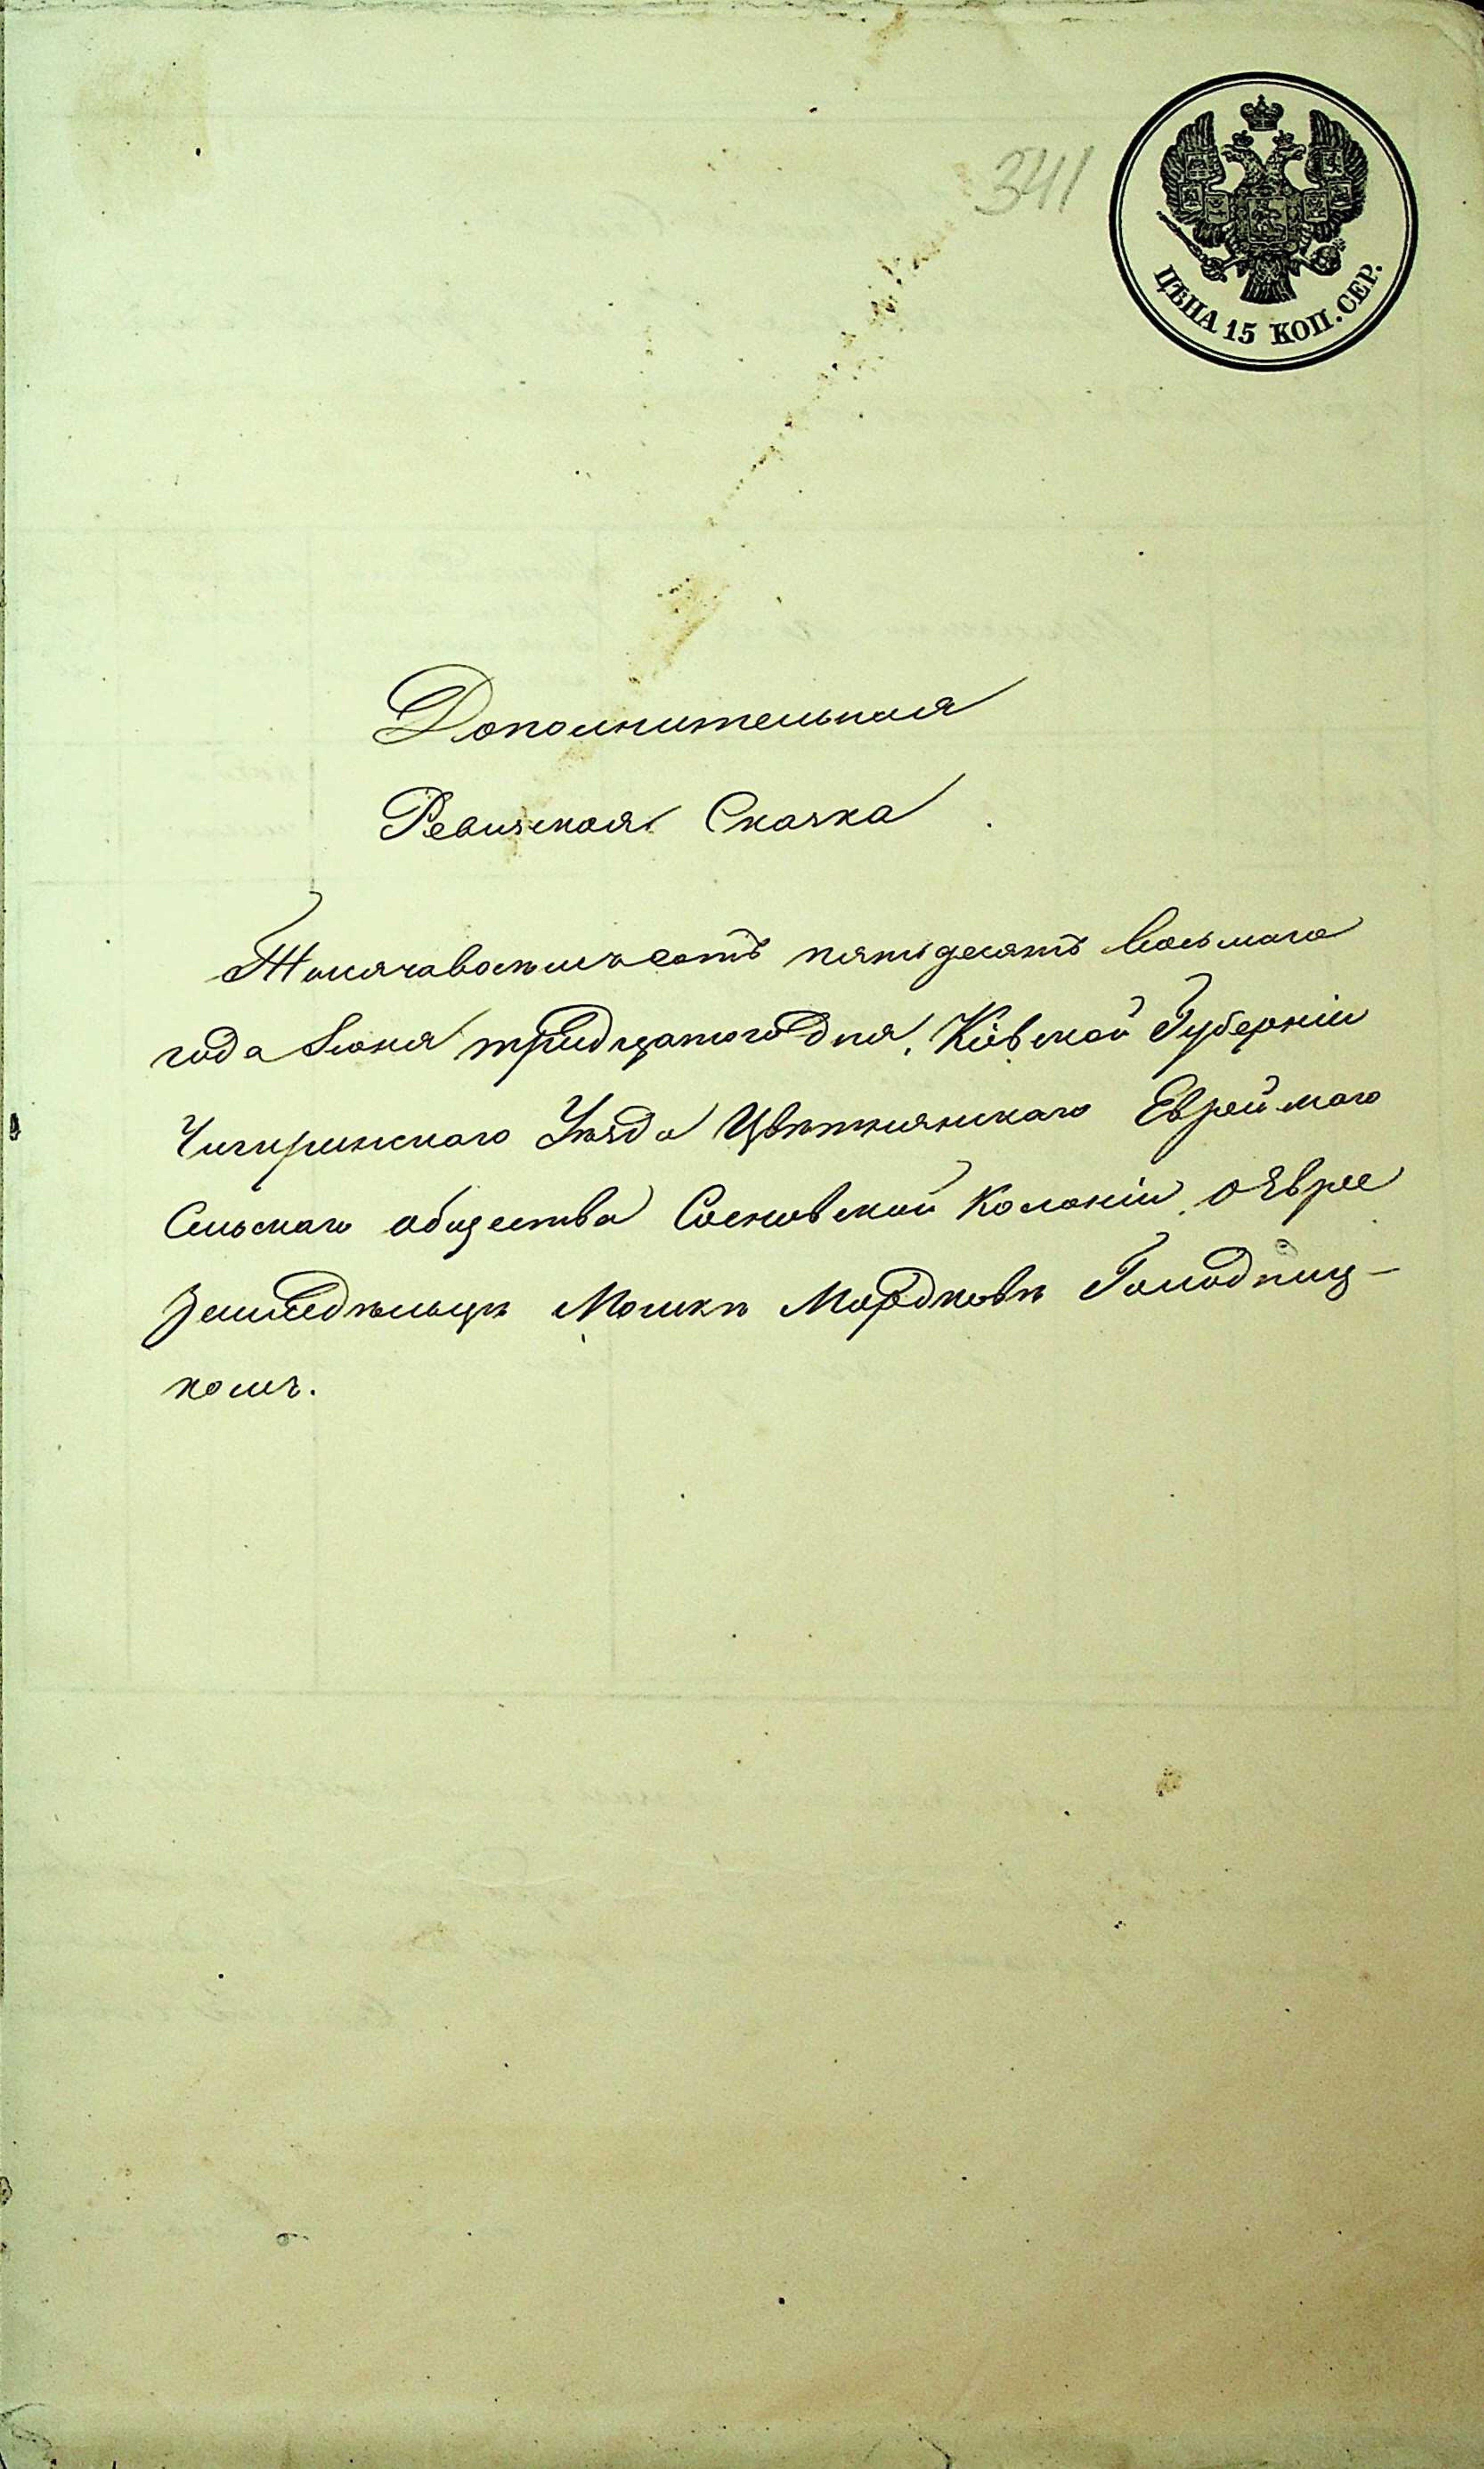 341
ЦѢНА 15 КОП. СЕР.
Дополнительная
Ревизская Сказка
Тысяча восемьсотъ пятьдесятъ восьмаго
года Іюня тридцатого дня, Кіевской Губерніи
Чигиринскаго Уѣзда Цвѣтнянскаго Еврейскаго
Сельскаго общества Сосновской Колоніи, о Еврее
Земледѣльцѣ Мошкѣ Мордковѣ Голодниц-
комъ.